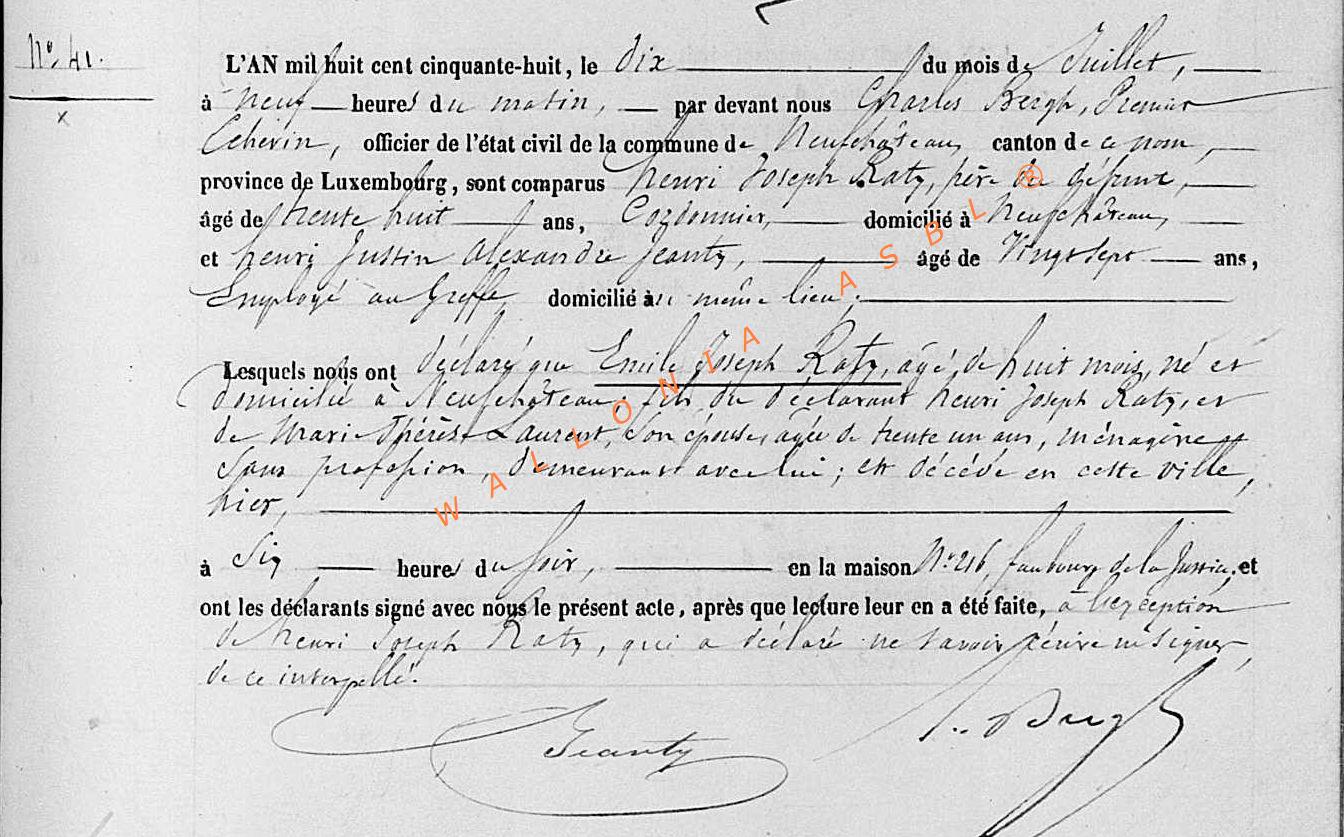 N° 41.
L'AN mil huit cent cinquante-huit, le dix du mois de Juillet,
à neuf heures du matin, par devant nous Charles Bergh, Premier
Echevin, officier de l'état civil de la commune de Neufchâteau, canton de ce nom,
province de Luxembourg, sont comparus henri Joseph Raty, père du défunt,
âgé de trente huit ans, Cordonnier, domicilié à Neufchâteau,
et henri Justin Alexandre Jeanty, âgé de Vingt sept ans,
Employé au Greffe, domicilié au même lieu;
Lesquels nous ont déclaré que Emile Joseph Raty, âgé de huit mois, né et
domicilié à Neufchâteau, fils du déclarant henri Joseph Raty, et
de Marie Thérèse Laurent, son épouse, agée de trente un ans, ménagère et
sans profession, demeurant avec lui; est décédé en cette ville,
hier,
à Six heures du soir, en la maison N° 216, faubourg de la Justice, et
ont les déclarants signé avec nous le présent acte, après que lecture leur en a été faite, à l'exception
de henri Joseph Raty, qui a déclaré ne savoir écrire ni signer,
de ce interpellé.
Jeanty
WALLONIA ASBL ®